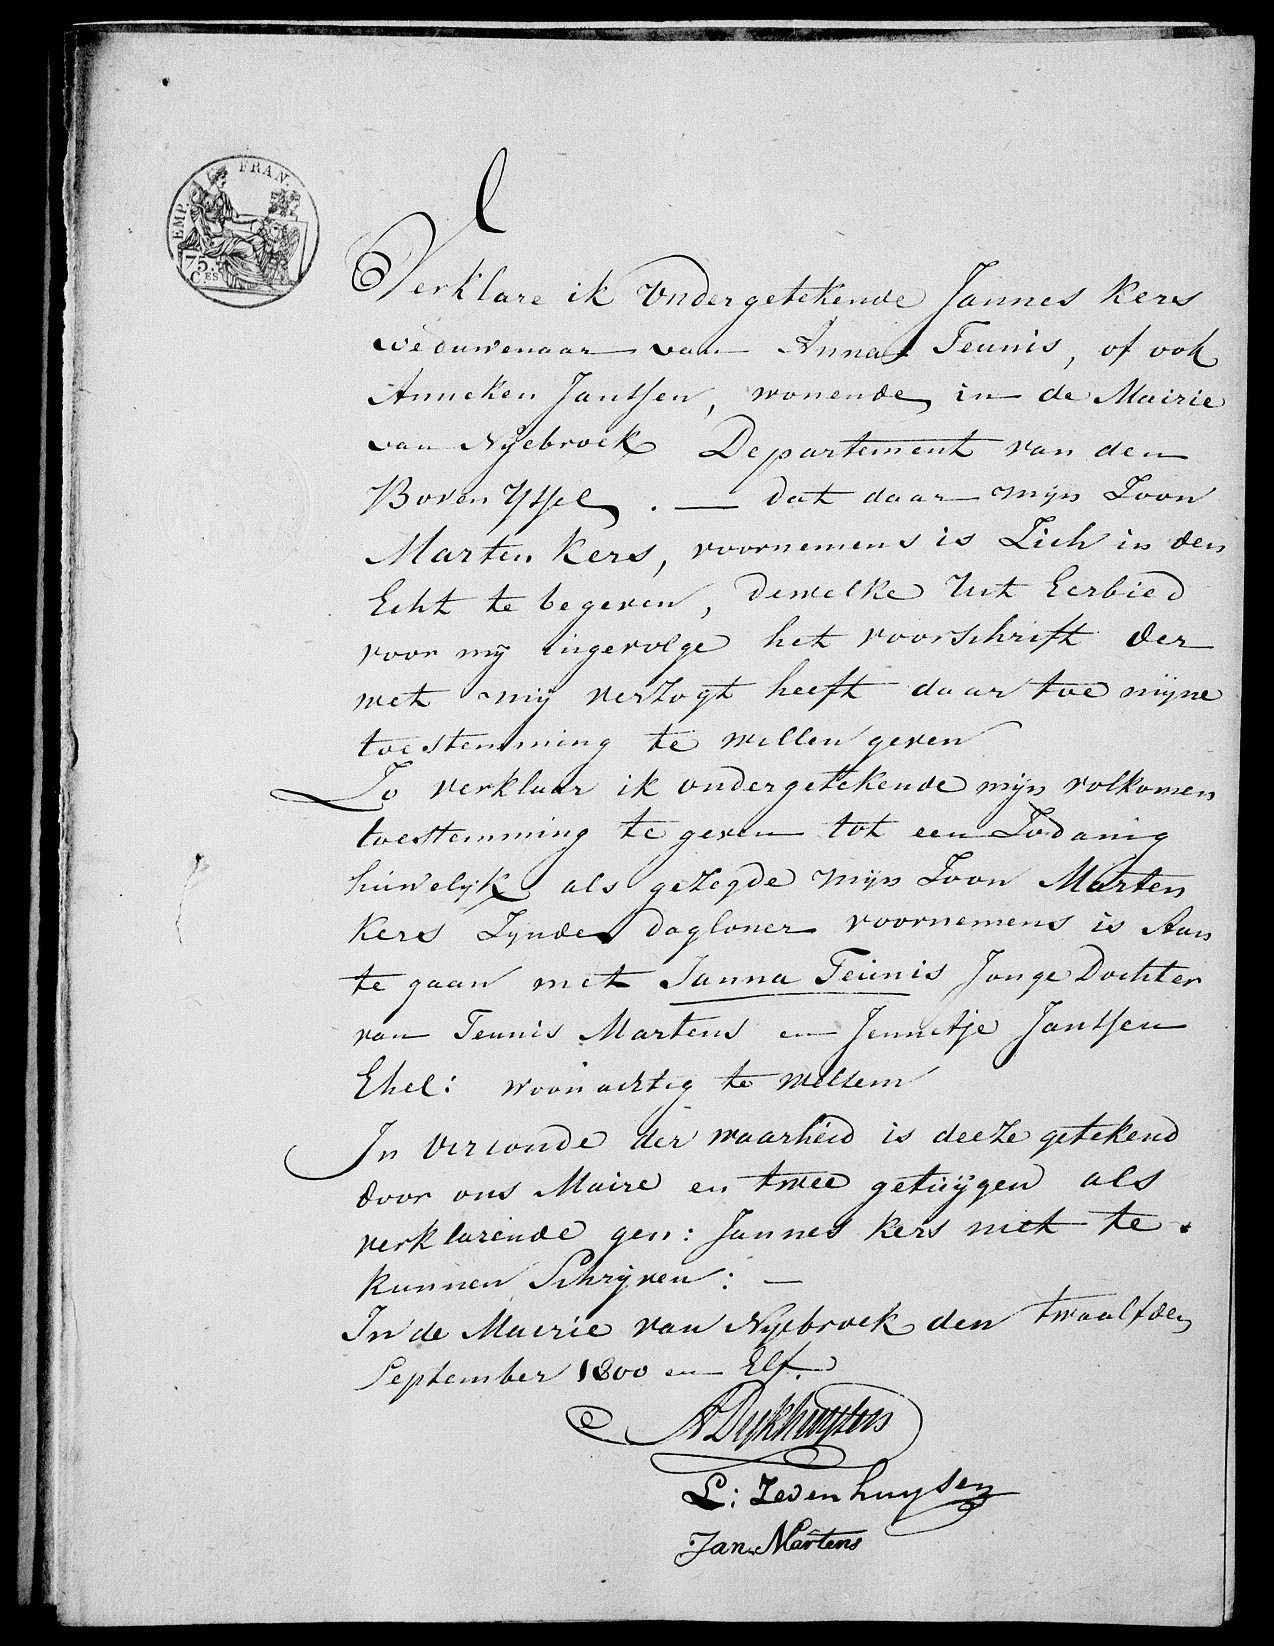 EMP. FRAN.
75.
C.ES
Verklare ik Undergetekende Jannes Kers
weduwenaar van Anna Teunis, of ook
Anneken Jantsen, wonende in de Mairie
van Nyebroek Departement van den
Boven Yssel. — dat daar mijn Zoon
Marten Kers, voornemens is Zich in den
Echt te begeven, dewelke Uit Eerbied
voor mij ingevolge het voorschrift der
wet mij verzogt heeft daar toe mijne
toestemming te willen geven
Zo verklaar ik ondergetekende mijn volkomen
toestemming te geven tot een Zodanig
huwelijk als gezegde mijn Zoon Marten
Kers Zynde dagloner voornemens is Aan
te gaan met Janna Teunis Jonge Dochter
van Teunis Martens en Jennetje Jantsen
Ehel: woonachtig te Welsem
In verconde der waarheid is deeze getekend
door ons Maire en twee getuijgen als
verklarende gen: Jannes Kers niet te
kunnen Schrijven: —
In de Maerie van Nyebroek den twaalfden
September 1800 en Elf.
A Dykhuysens
L: Zevenhuysen
Jan Martens